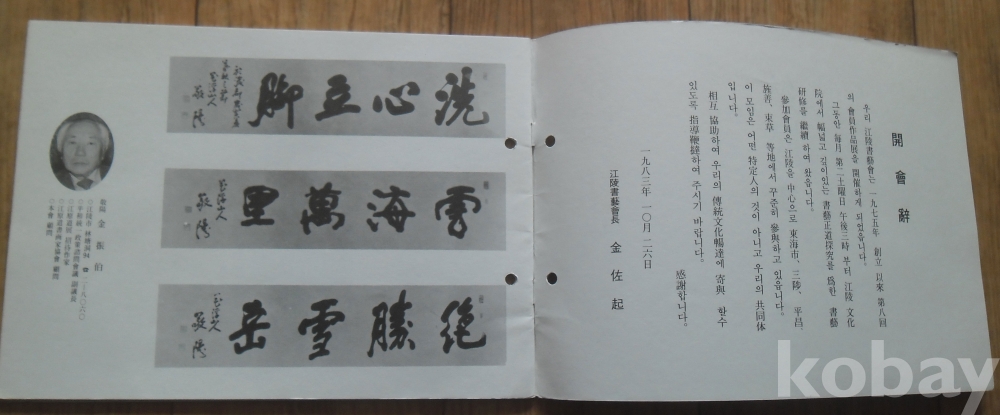 開會辭
우리 江陵書藝會는 一九七五年 創立 以來 第八回
의 會員作品展을 開催하게 되었읍니다.
그동안 每月 第二土曜日 午後三時 부터 江陵 文化
院에서 幅넓고 깊이있는 書藝正道探究을 爲한 書藝
研修를 繼續 하여 왔읍니다.
參加會員은 江陵을 中心으로 東海市、三陟、平昌、
旌善、束草 等地에서 꾸준히 參與하고 있읍니다.
이 모임은 어떤 特定人의 것이 아니고 우리의 共同体
입니다.
相互 協助하여 우리의 傳統文化暢達에 寄與 할수
있도록 指導鞭撻하여 주시기 바랍니다.
感謝합니다.
一九八三年 一○月 二六日
江陵書藝會長 金佐起
洗心立脚
雲海萬里
絶勝雪岳
金振伯
○本會 顧問
kobay